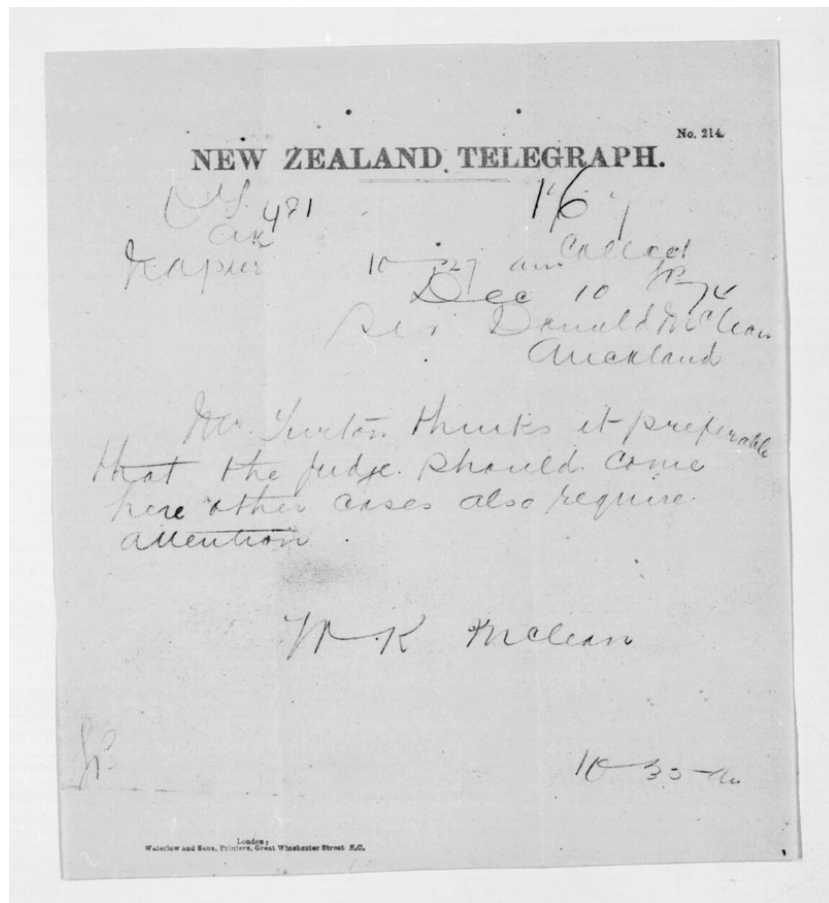 No. 214.
NEW ZEALAND TELEGRAPH.
481
Napier 10 27 am Collect
Dec 10 74
Sir Donald McLean
Auckland
Mr. Turton thinks it preferable
that the judge should come
here other cases also require
attention.
McLean
10-35 a
London:
Waterlow and Sons, Printers, Great Winchester Street E.C.